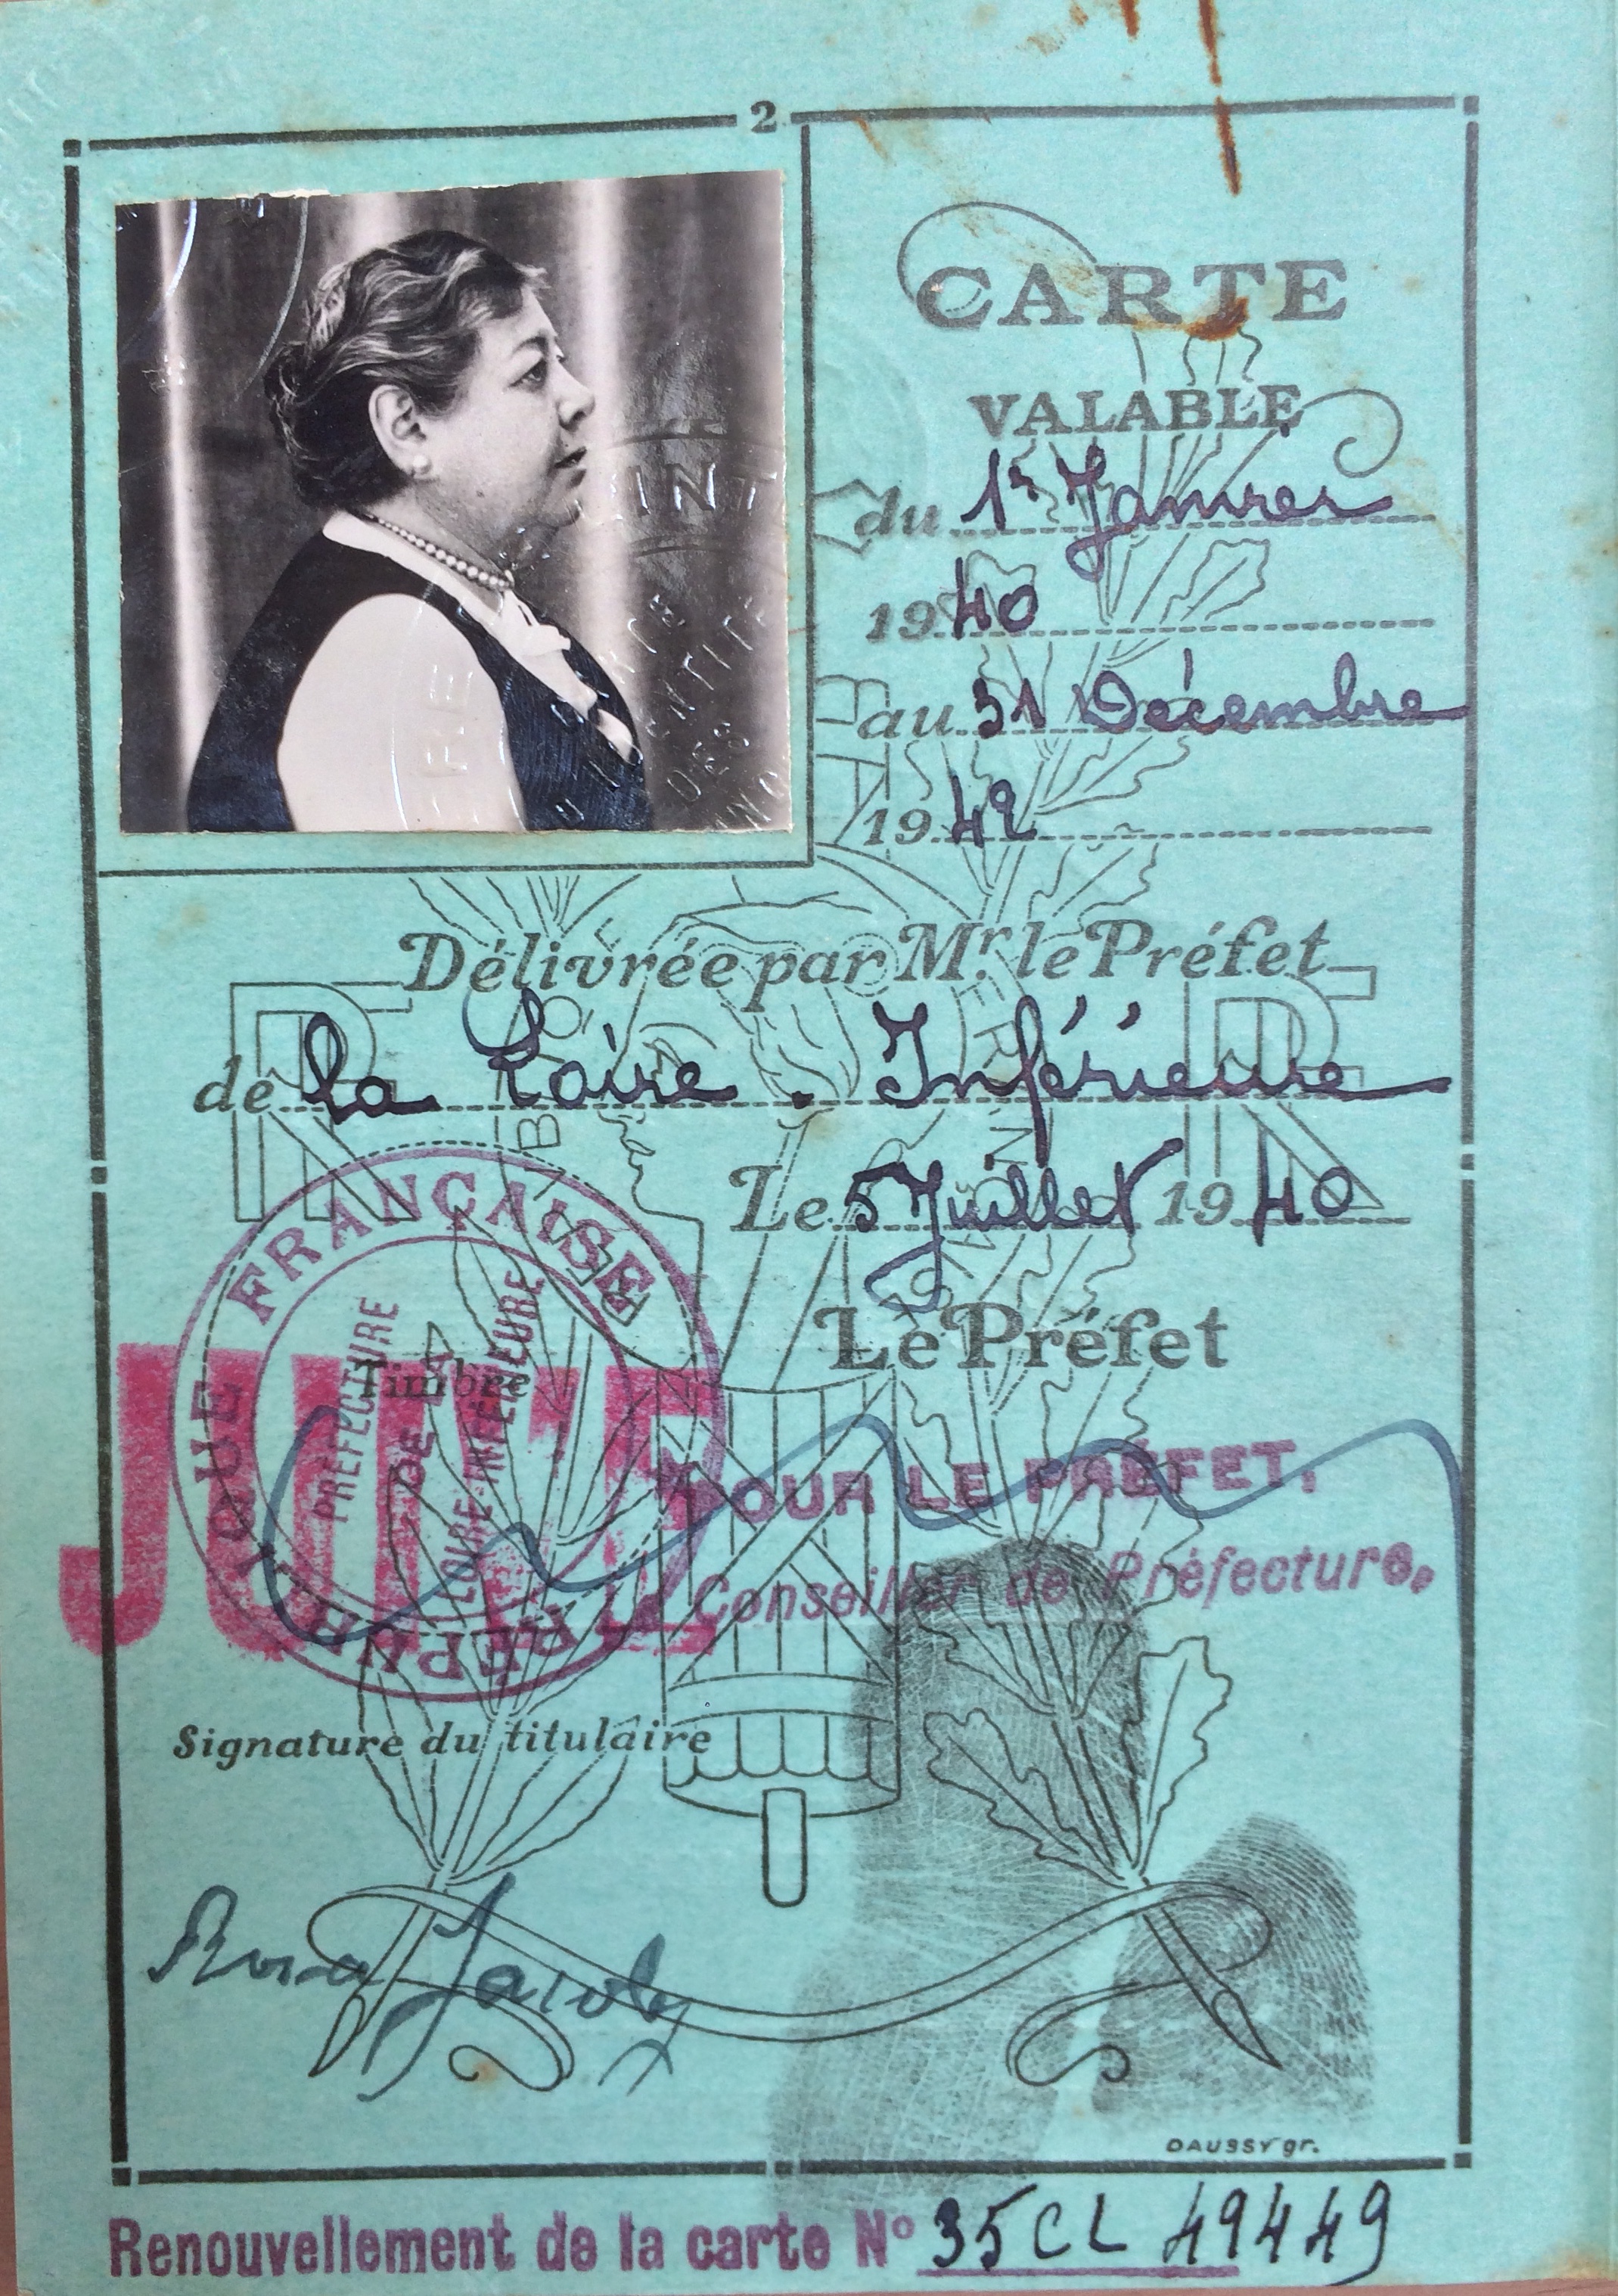 2
CARTE
VALABLE
du 1er Janvier
1940
au 31 Décembre
1942
Délivrée par Mr. le Préfet
de la Loire. Inférieure
Le 5 Juillet 1940
Le Préfet
RÉPUBLIQUE FRANÇAISE
PRÉFECTURE
DE LA
LOIRE-INFÉRIEURE
Timbre
JUIVE
POUR LE PRÉFET,
Le Conseiller de Préfecture,
Signature du titulaire
Rosa Jacoby
DAUSSY gr.
Renouvellement de la carte No 35CL 49449